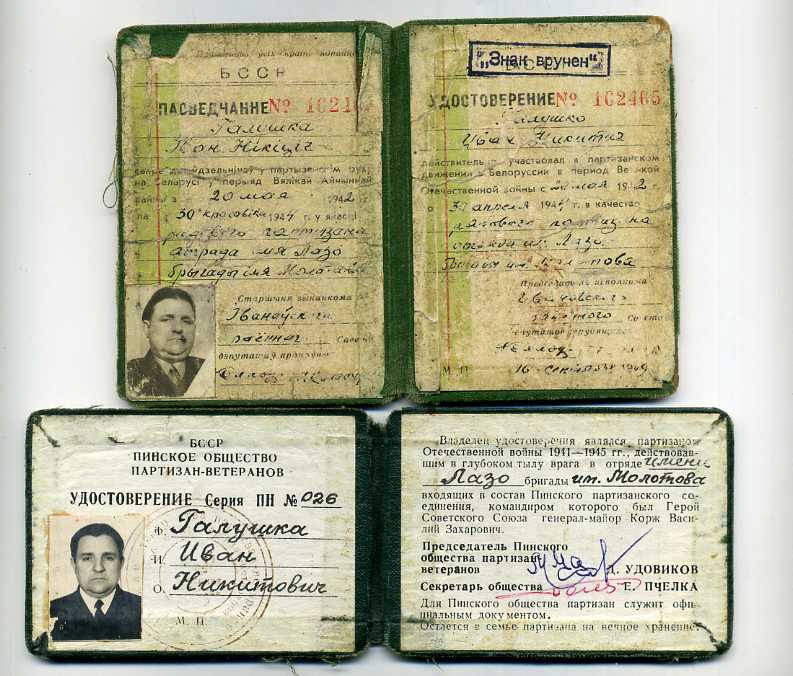 БССР
ПАСВЕДЧАННЕ № 1С21
Галушка
Нікіціч
у партызанскім
на Беларусі у перыяд Вялікай Айчыннай
вайны з 20 мая 1942 г.
па 30 красавіка 1944 г. у якасці
радавога партызана
атрада імя Лазо
брыгады імя Молатава
Старшыня выканкома
Іванаўскага
раённага
дэпутатаў працоўных
„Знак вручен“
УДОСТОВЕРЕНИЕ № 1С2465
Галушко
Иван Никитич
действительно участвовал в партизанском
движении в Белоруссии в период Великой
Отечественной войны с 20 мая 1942 г.
по 30 апреля 1944 г. в качестве
рядового
отряда им. Лазо
им. Молотова
Председатель исполкома
Ивановского
районного
М. П.
16 сентября
БССР
ПИНСКОЕ ОБЩЕСТВО
ПАРТИЗАН-ВЕТЕРАНОВ
УДОСТОВЕРЕНИЕ Серия ПН № 026
Ф. Галушка
И. Иван
О. Никитович
М. П.
Владелец удостоверения являлся партизаном
Отечественной войны 1941—1945 гг., действовав-
шим в глубоком тылу врага в отряде имени
Лазо бригады им. Молотова
входящих в состав Пинского партизанского со-
единения, командиром которого был Герой
Советского Союза генерал-майор Корж Васи-
лий Захарович.
Председатель Пинского
общества партизан
ветеранов Д. УДОВИКОВ
Секретарь общества Е. ПЧЕЛКА
Для Пинского общества партизан служит офи-
циальным документом.
Остается в семье партизана на вечное хранение.